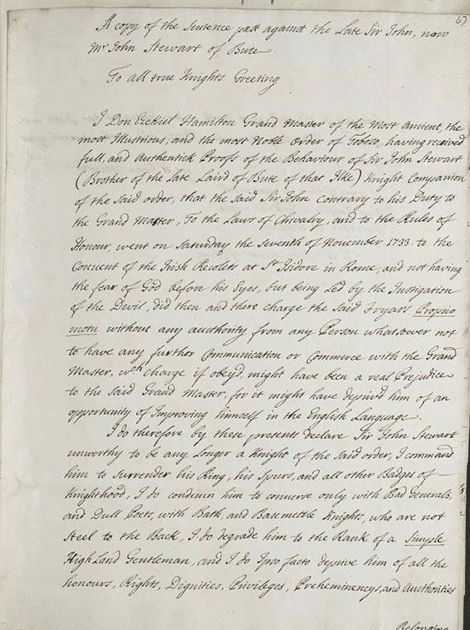 67
A copy of the Sentence past against the Late Sir John, now
Mr John Stewart of Bute
To all true Knights Greeting
I Don Ezekiel Hamilton Grand Master of the Most Ancient, the
most Illustrious, and the most Noble Order of Toboso, having received
full and Authentick Proofs of the Behaviour of Sir John Stewart
(Brother of the late Laird of Bute of that Ilke) Knight Companion
of the said order, that the said Sir John contrary to his Duty to
the Grand Master, To the Laws of Chivalry, and to the Rules of
Honour, went on Saturday the seventh of November 1733 to the
Convent of the Irish Recolets at St Isidore in Rome, and not having
the fear of God before his Eyes, but being Led by the Instigation
of the Devil, did then and there charge the Said Fryars Proprio
motu without any authority from any Person whatsoever not
to have any further Communication or Commerce with the Grand
Master, wch charge if obey'd might have been a real Prejudice
to the said Grand Master, for it might have depriv'd him of an
opportunity of Improving himself in the English Language.
I do therefore by these presents declare Sir John Stewart
unworthy to be any longer a Knight of the Said order, I command
him to Surrender his Ring, his Spurs, and all other Badges of
Knighthood, I do condemn him to converse only with Bad Generals,
and Dull Poets, with Bath, and Basemettle Knights, who are not
Steel to the Back, I do degrade him to the Rank of a Simple
High Land Gentleman, and I do Ipso facto deprive him of all the
honours, Rights, Dignities, Privileges, Preheminencys, and Authorities
Belonging